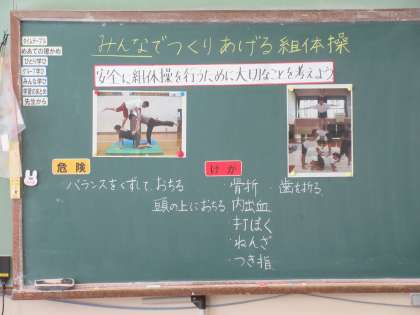 みんなでつくりあげる組体操
安全に組体操を行うために大切なことを考えよう
タイムテーブル
めあての確かめ
ひとり学び
グループ学び
みんな学び
学習のまとめ
先生から
危険
バランスをくずして、おちる
頭の上におちる
けが
骨折・歯を折る
内出血
打ぼく
ねんざ
つき指